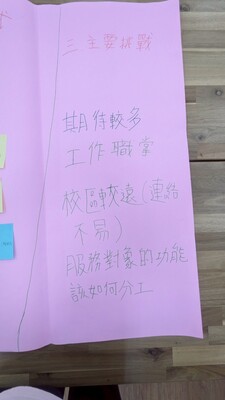 三 主要挑戰
期待較多
工作職掌
校區較遠(連絡
不易)
服務對象的功能
該如何分工